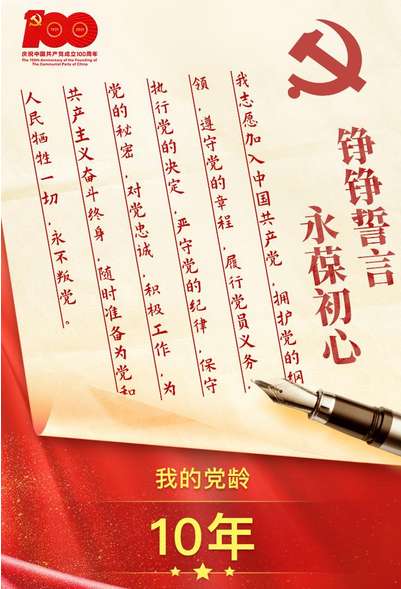 100
1921
2021
庆祝中国共产党成立100周年
The 100th Anniversary of the Founding of
The Communist Party of China
铮铮誓言
永葆初心
我志愿加入中国共产党，拥护党的纲
领，遵守党的章程，履行党员义务，
执行党的决定，严守党的纪律，保守
党的秘密，对党忠诚，积极工作，为
共产主义奋斗终身，随时准备为党和
人民牺牲一切，永不叛党。
我的党龄
10年